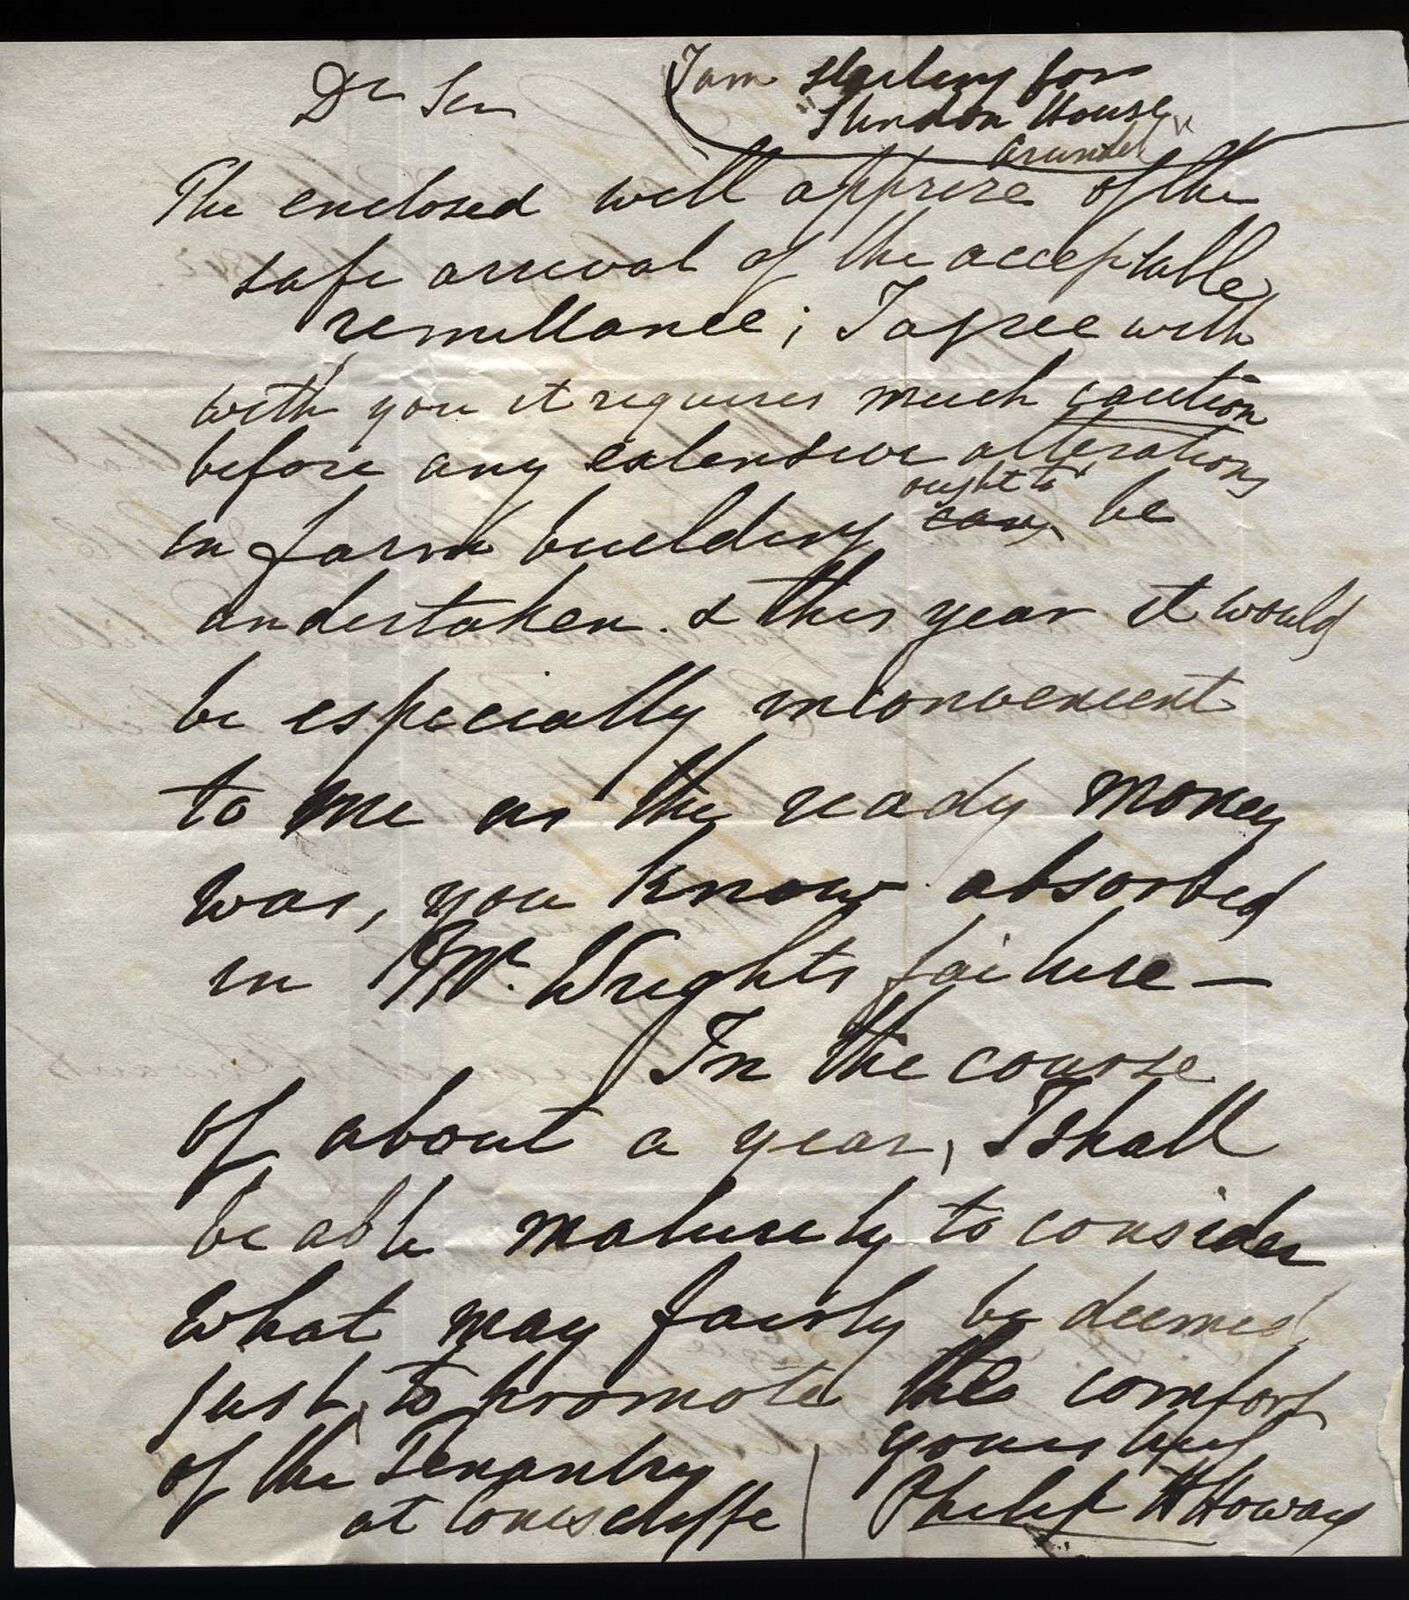 Dr Sir
I am starting for
Slindon House
Arundel
The enclosed will apprize of the
safe arrival of the acceptable
remittance; I agree with
with you it requires much caution
before any extensive alterations
in farm building ought to can be
undertaken. & this year it would
be especially inconvenient
to me as the ready money
was, you know absorbed
in Mr. Wrights failure —
In the course
of about a year, I shall
be able maturely to consider
what may fairly be deemed
just, to promote the comfort
of the Tenantry
at Coniscliffe
yours truly
Philip H Howard